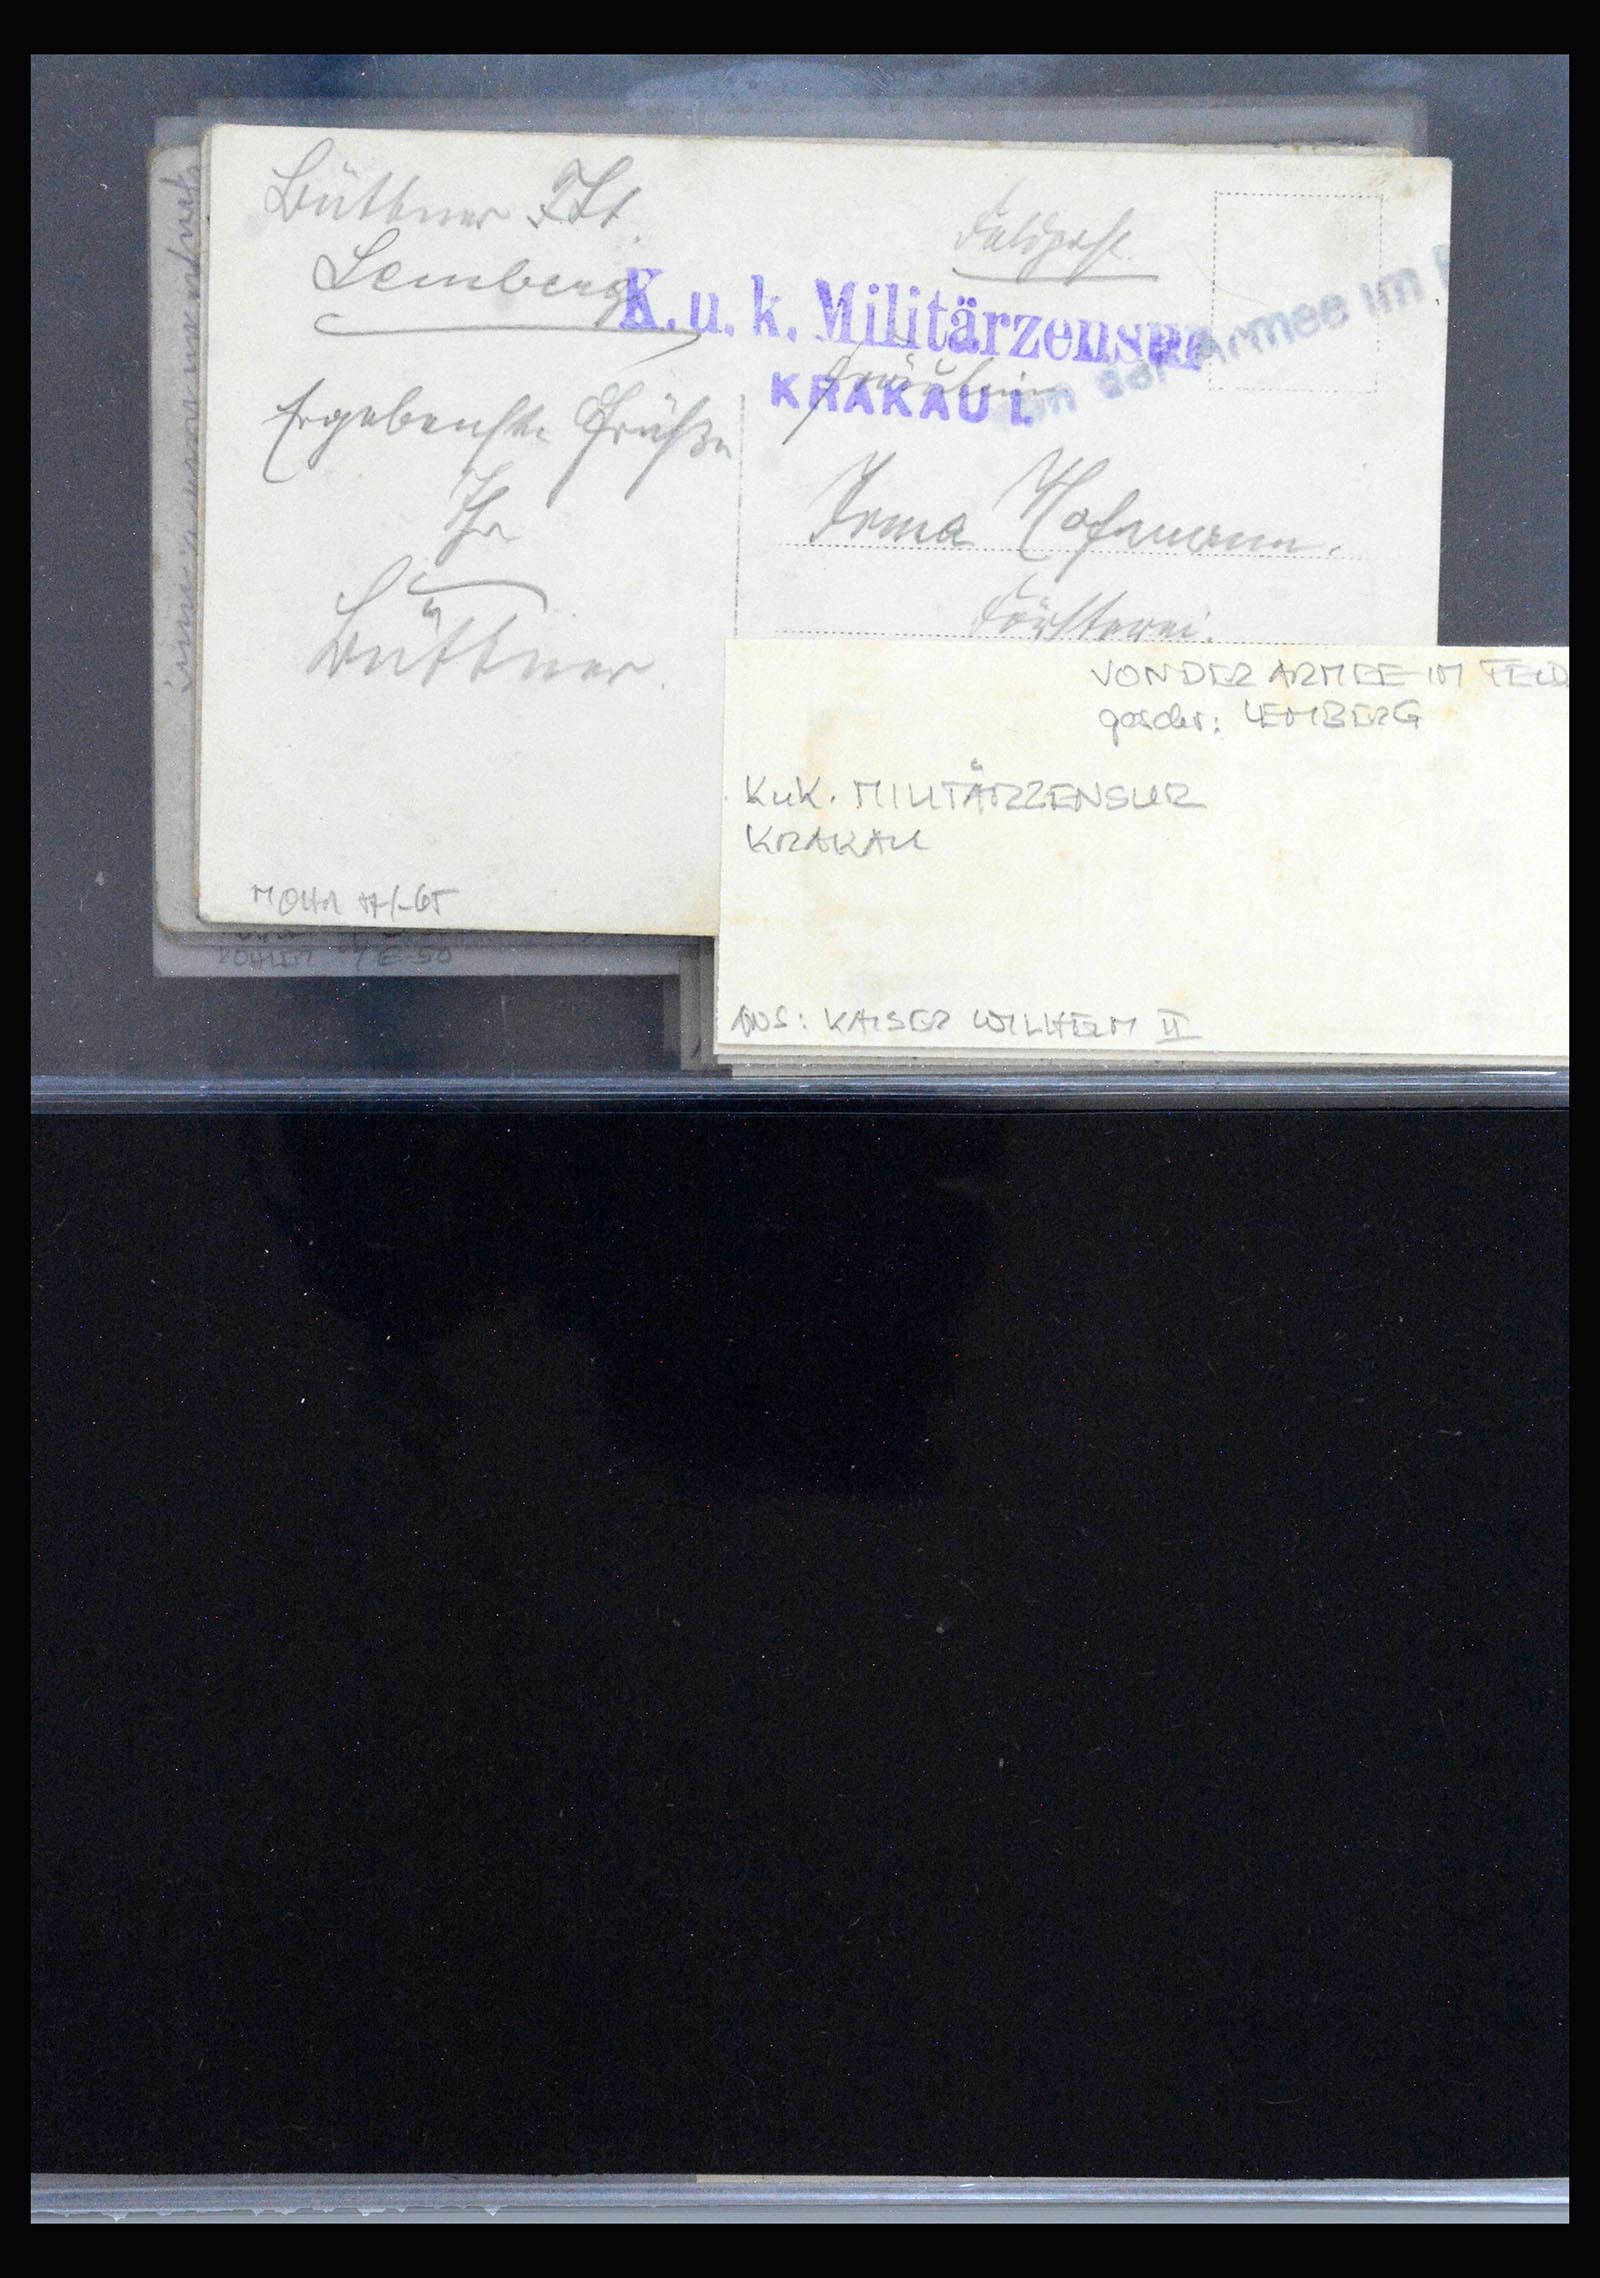 Büttner
Lemberg
Feldpost.
K. u. k. Militärzensur
KRAKAU I.
von der Armee im F
Fräulein
Ergebenste Grüße
Ihr
Büttner.
Irma Hofmann.
Försterei.
VON DER ARMEE IM FELD
geschr: LEMBERG
KuK. MILITÄRZENSUR
KRAKAU
ANS: KAISER WILHELM II